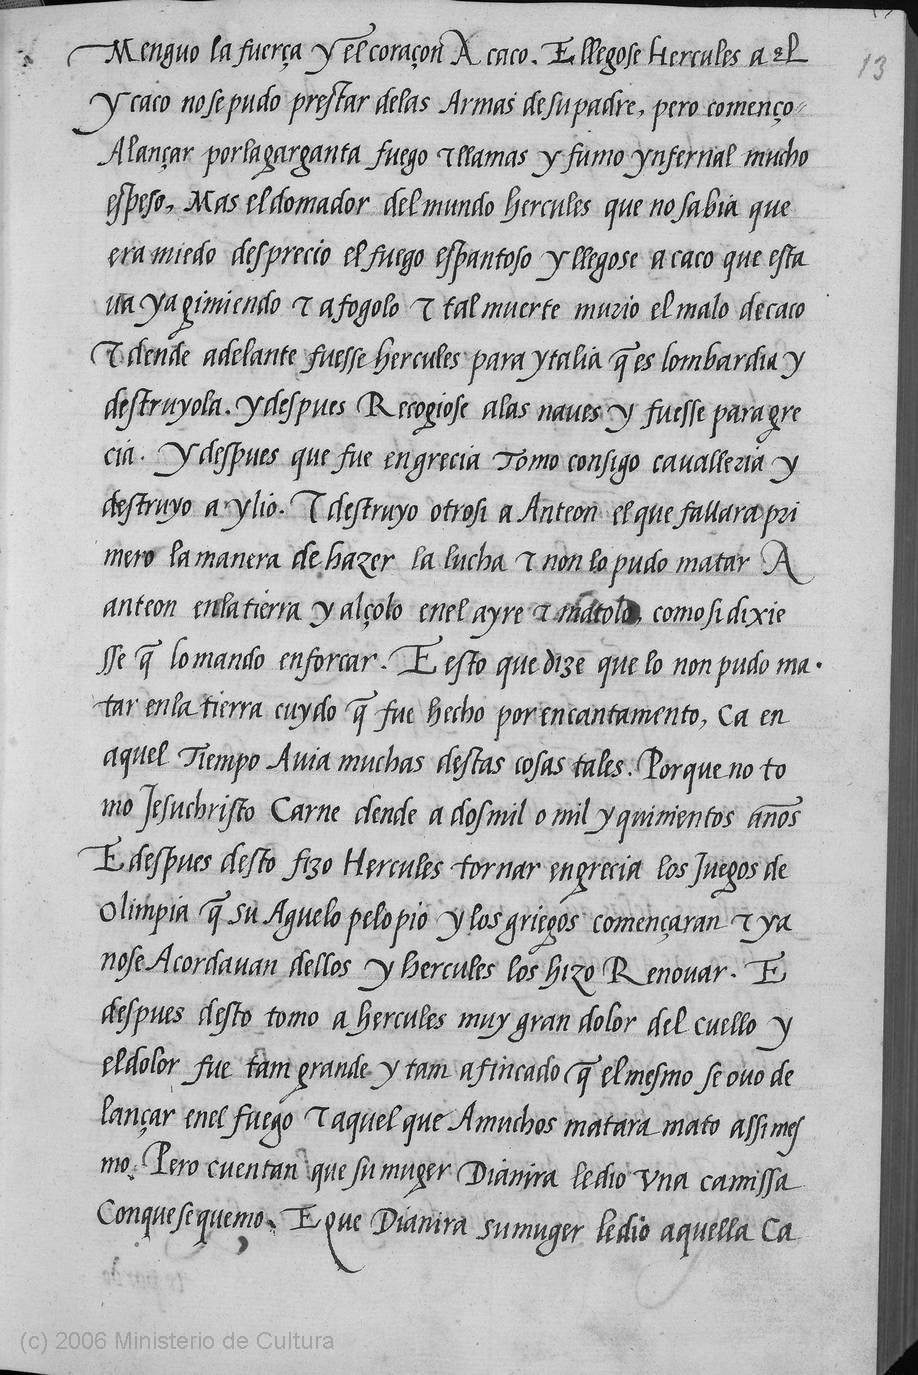 13
Menguo la fuerça y el coraçon A caco. E llegose Hercules a el
y caco nose pudo prestar delas Armas desu padre, pero començo
Alançar porla garganta fuego τ llamas y fumo ynfernal mucho
espeso, Mas el domador del mundo hercules que no sabia que
era miedo desprecio el fuego espantoso y llegose a caco que esta
ua ya gimiendo τ afogolo τ tal muerte murio el malo de caco
τ dende adelante fuesse hercules para ytalia q̃ es lombardia y
destruyola. y despues Recogiose alas naues y fuesse para gre
cia. y despues que fue en grecia Tomo consigo cavalleria y
destruyo a ylio. τ destruyo otrosi a Anteon el que fallara pri
mero la manera de hazer la lucha τ non lo pudo matar A
anteon enla tierra y alçolo enel ayre τ matolo, como si dixie
sse q̃ lo mando enforcar. E esto que dize que lo non pudo ma.
tar enla tierra cuydo q̃ fue hecho por encantamento, Ca en
aquel Tiempo Auia muchas destas cosas tales. Porque no to
mo Jesuchristo Carne dende a dos mil o mil y quinientos años
E despues desto fizo Hercules tornar en grecia los Juegos de
Olimpia q̃ su Aguelo pelopio y los griegos començaran τ ya
nose Acordauan dellos y hercules los hizo Renouar. E
despues desto tomo a hercules muy gran dolor del cuello y
el dolor fue tam grande y tam afincado q̃ el mesmo se ouo de
lançar enel fuego τ aquel que Amuchos matara mato assimes
mo. Pero cuentan que su muger Dianira le dio vna camissa
Conque se quemo. E que Dianira su muger le dio aquella Ca
(c) 2006 Ministerio de Cultura